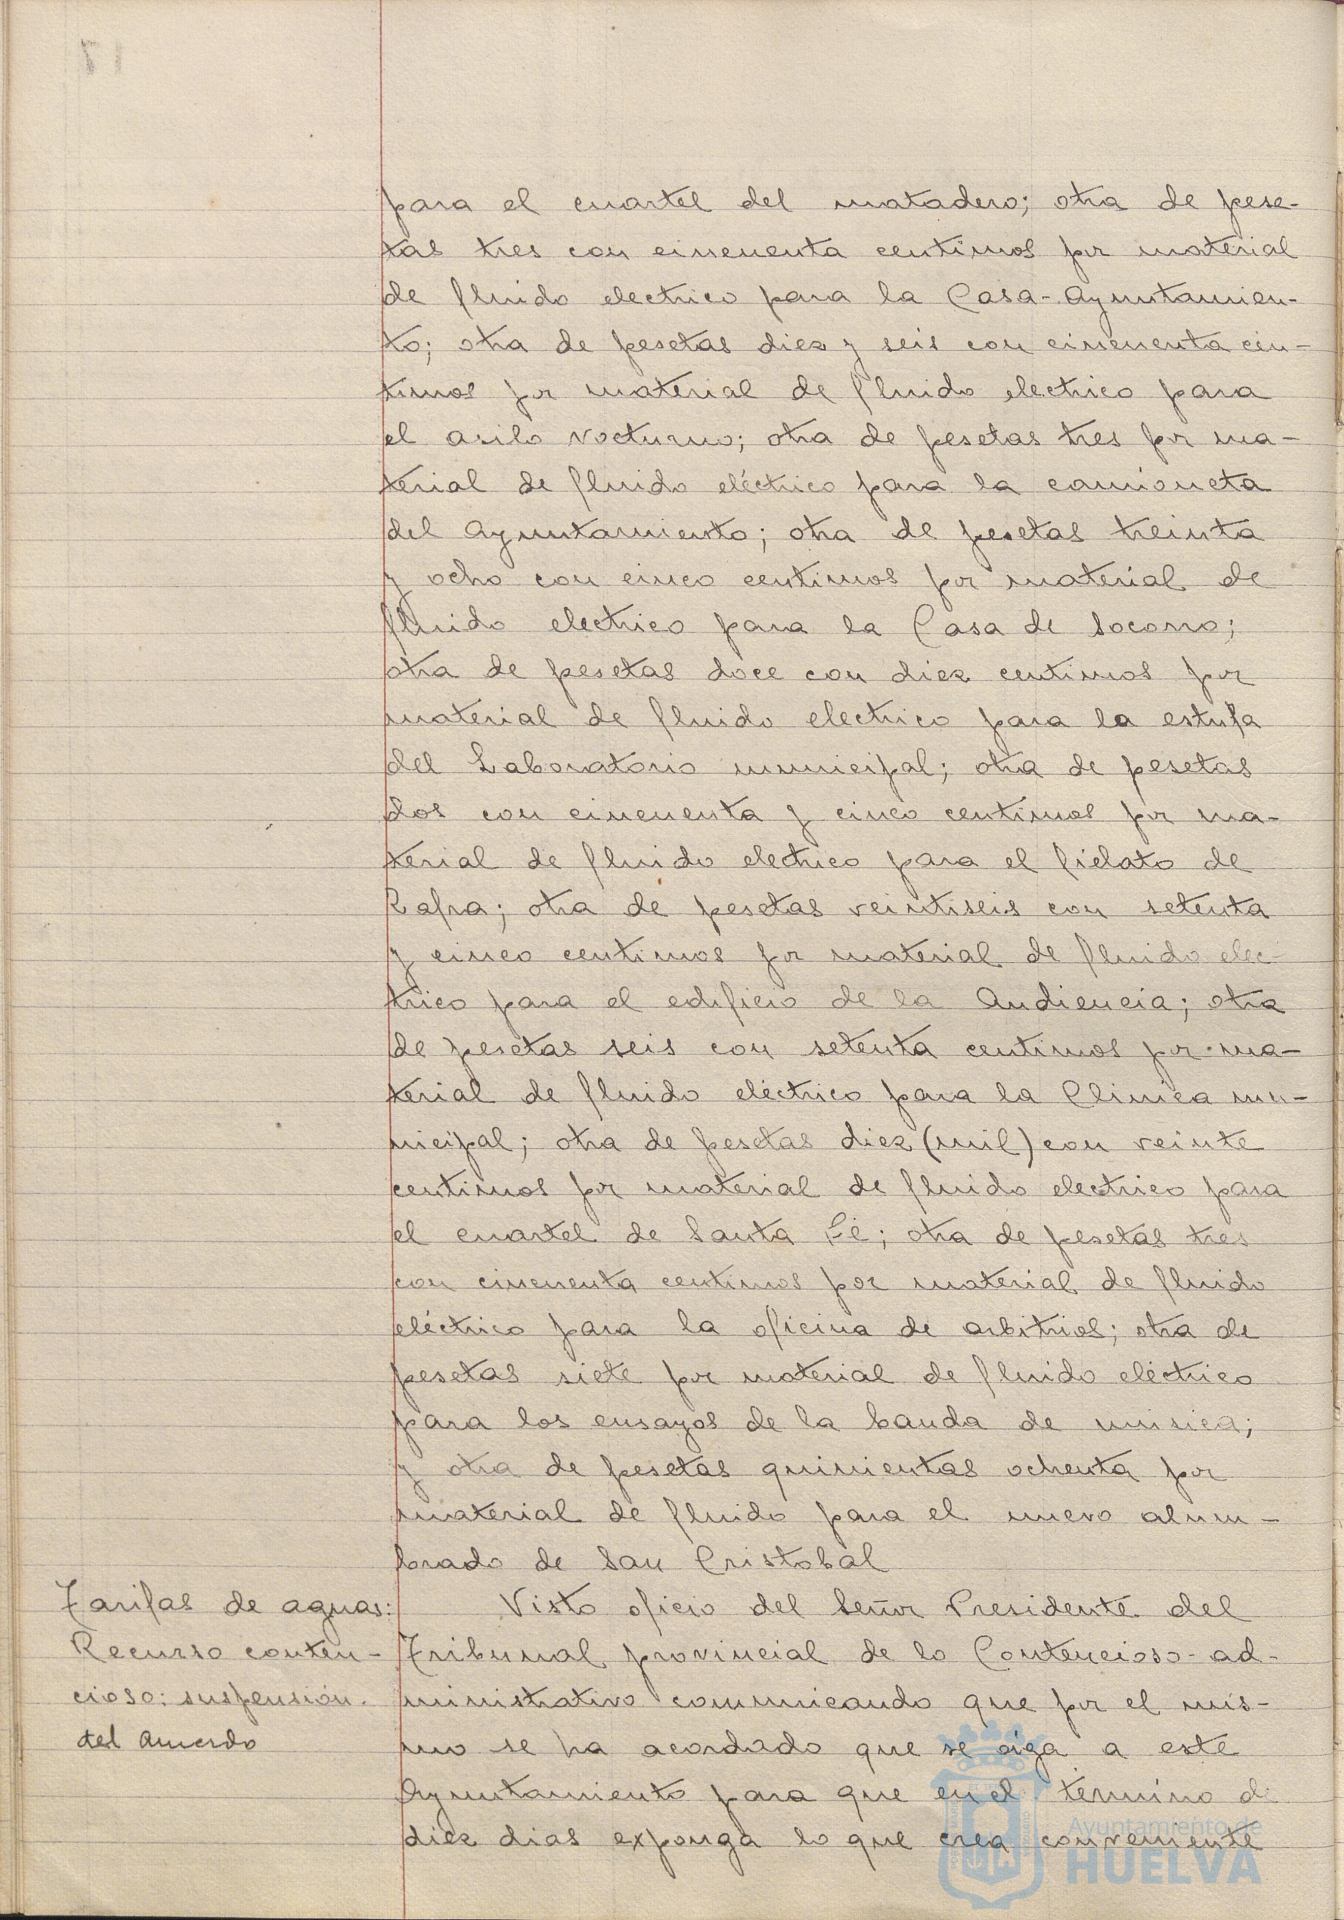 para el cuartel del matadero; otra de pese-
tas tres con cincuenta centimos por material
de fluido electrico para la Casa-Ayuntamien-
to; otra de pesetas diez y seis con cincuenta cen-
timos por material de fluido electrico para
el asilo nocturno; otra de pesetas tres por ma-
terial de fluido eléctrico para la camioneta
del Ayuntamiento; otra de pesetas treinta
y ocho con cinco centimos por material de
fluido electrico para la Casa de Socorro;
otra de pesetas doce con diez centimos por
material de fluido electrico para la estufa
del Laboratorio municipal; otra de pesetas
dos con cincuenta y cinco centimos por ma-
terial de fluido electrico para el fielato de
Zafra; otra de pesetas veintiseis con setenta
y cinco centimos por material de fluido elec-
trico para el edificio de la Audiencia; otra
de pesetas seis con setenta centimos por ma-
terial de fluido eléctrico para la Clinica mu-
nicipal; otra de pesetas diez (mil) con veinte
centimos por material de fluido electrico para
el cuartel de Santa Fé; otra de pesetas tres
con cincuenta centimos por material de fluido
eléctrico para la oficina de arbitrios; otra de
pesetas siete por material de fluido eléctrico
para los ensayos de la banda de música;
y otra de pesetas quinientas ochenta por
material de fluido para el nuevo alum-
brado de San Cristobal
Tarifas de aguas:
Recurso conten-
cioso: suspensión
del Acuerdo
Visto oficio del Señor Presidente del
Tribunal provincial de lo Contencioso-ad-
ministrativo comunicando que por el mis-
mo se ha acordado que se oiga a este
Ayuntamiento para que en el término de
diez dias exponga lo que crea conveniente
Ayuntamiento de
HUELVA